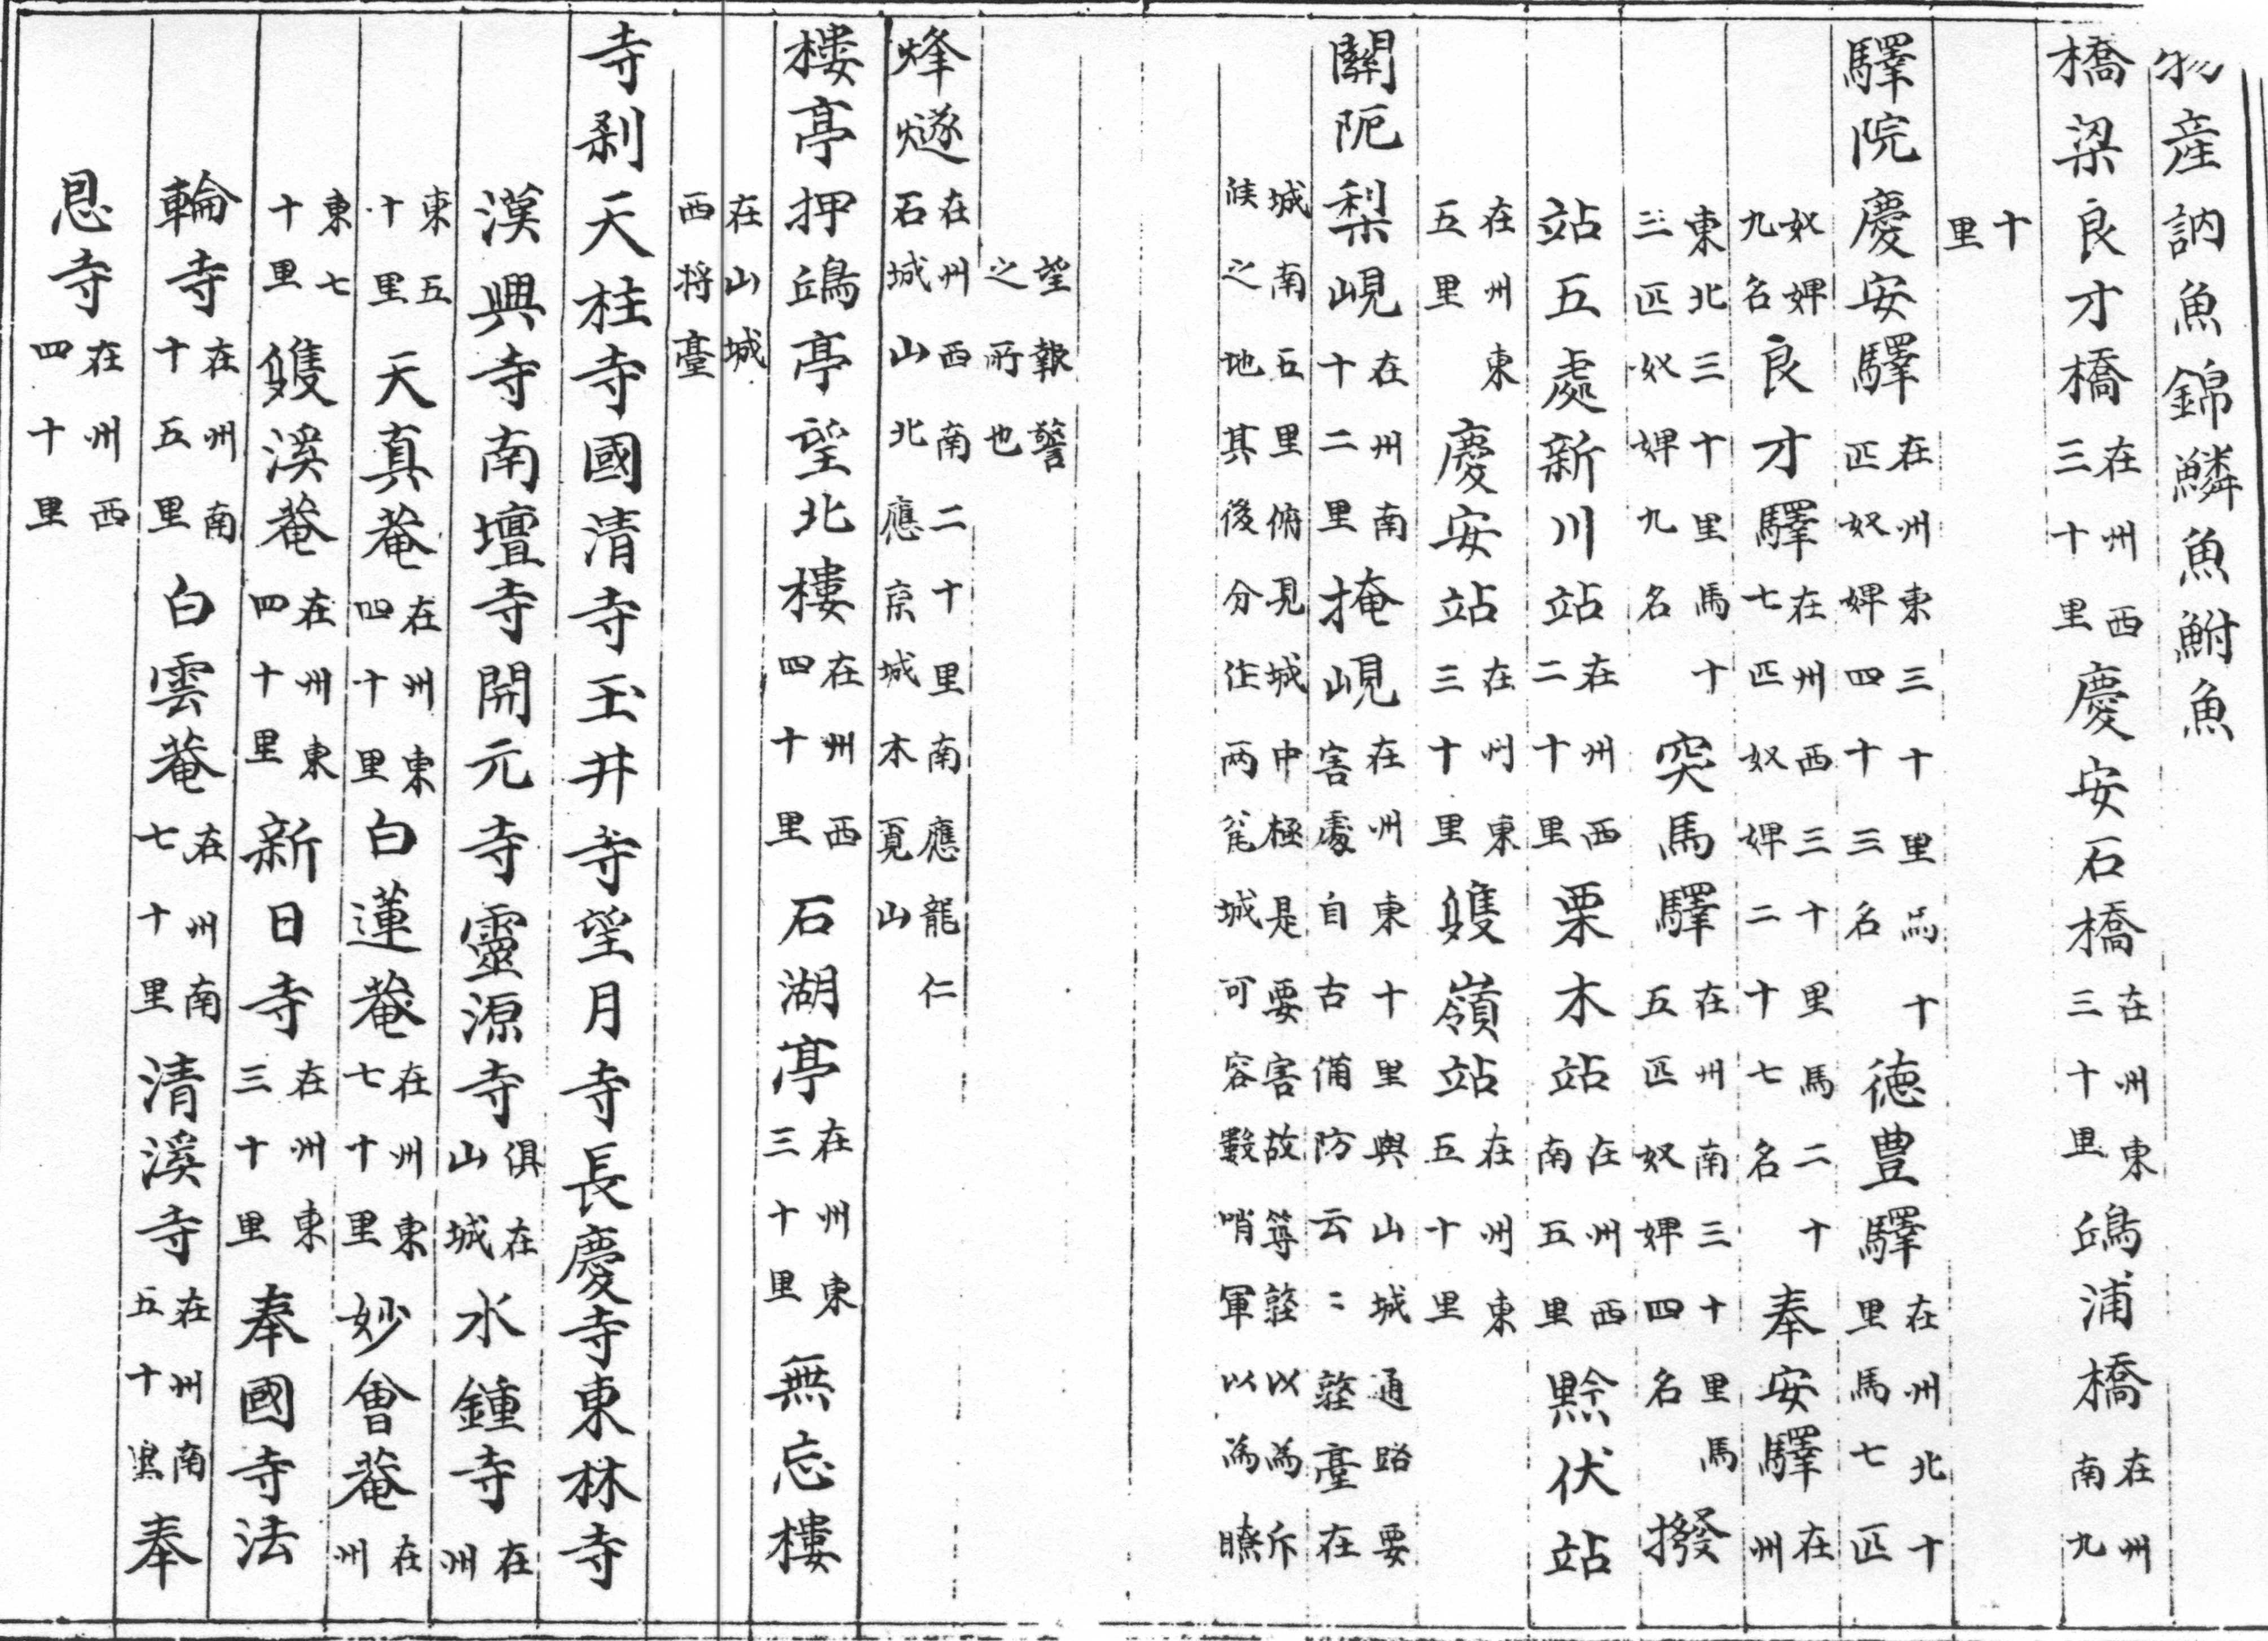 物産訥魚錦鱗魚鮒魚
橋梁良才橋在州西三十里慶安石橋在州東三十里鴎浦橋在州南九
十里
驛院慶安驛在州東三十里馬十匹奴婢四十三名德豊驛在州北十里馬七匹
奴婢九名良才驛在州西三十里馬二十七匹奴婢二十七名奉安驛在州
東北三十里馬十三匹奴婢九名突馬驛在州南三十里馬五匹奴婢四名撥
站五處新川站在州西二十里栗木站在州西南五里黔伏站
在州東五里慶安站在州東三十里雙嶺站在州東五十里
關阨梨峴在州南十二里掩峴在州東十里與山城通路要害處自古備防云〻墩臺在
城南五里俯見城中極是要害故築墩以爲斥候之地其後分作兩瓮城可容數哨軍以爲瞭
望報警之所也
烽燧在州西南二十里南應龍仁石城山北應京城木覔山
樓亭押鴎亭望北樓在州西四十里石湖亭在州東三十里無忘樓
在山城西將臺
寺刹天柱寺國清寺玉井寺望月寺長慶寺東林寺
漢興寺南壇寺開元寺靈源寺俱在山城水鍾寺在州
東五十里天真菴在州東四十里白蓮菴在州東七十里妙會菴在州
東七十里雙溪菴在州東四十里新日寺在州東三十里奉國寺法
輪寺在州南十五里白雲菴在州南七十里清溪寺在州南五十里奉
恩寺在州西四十里